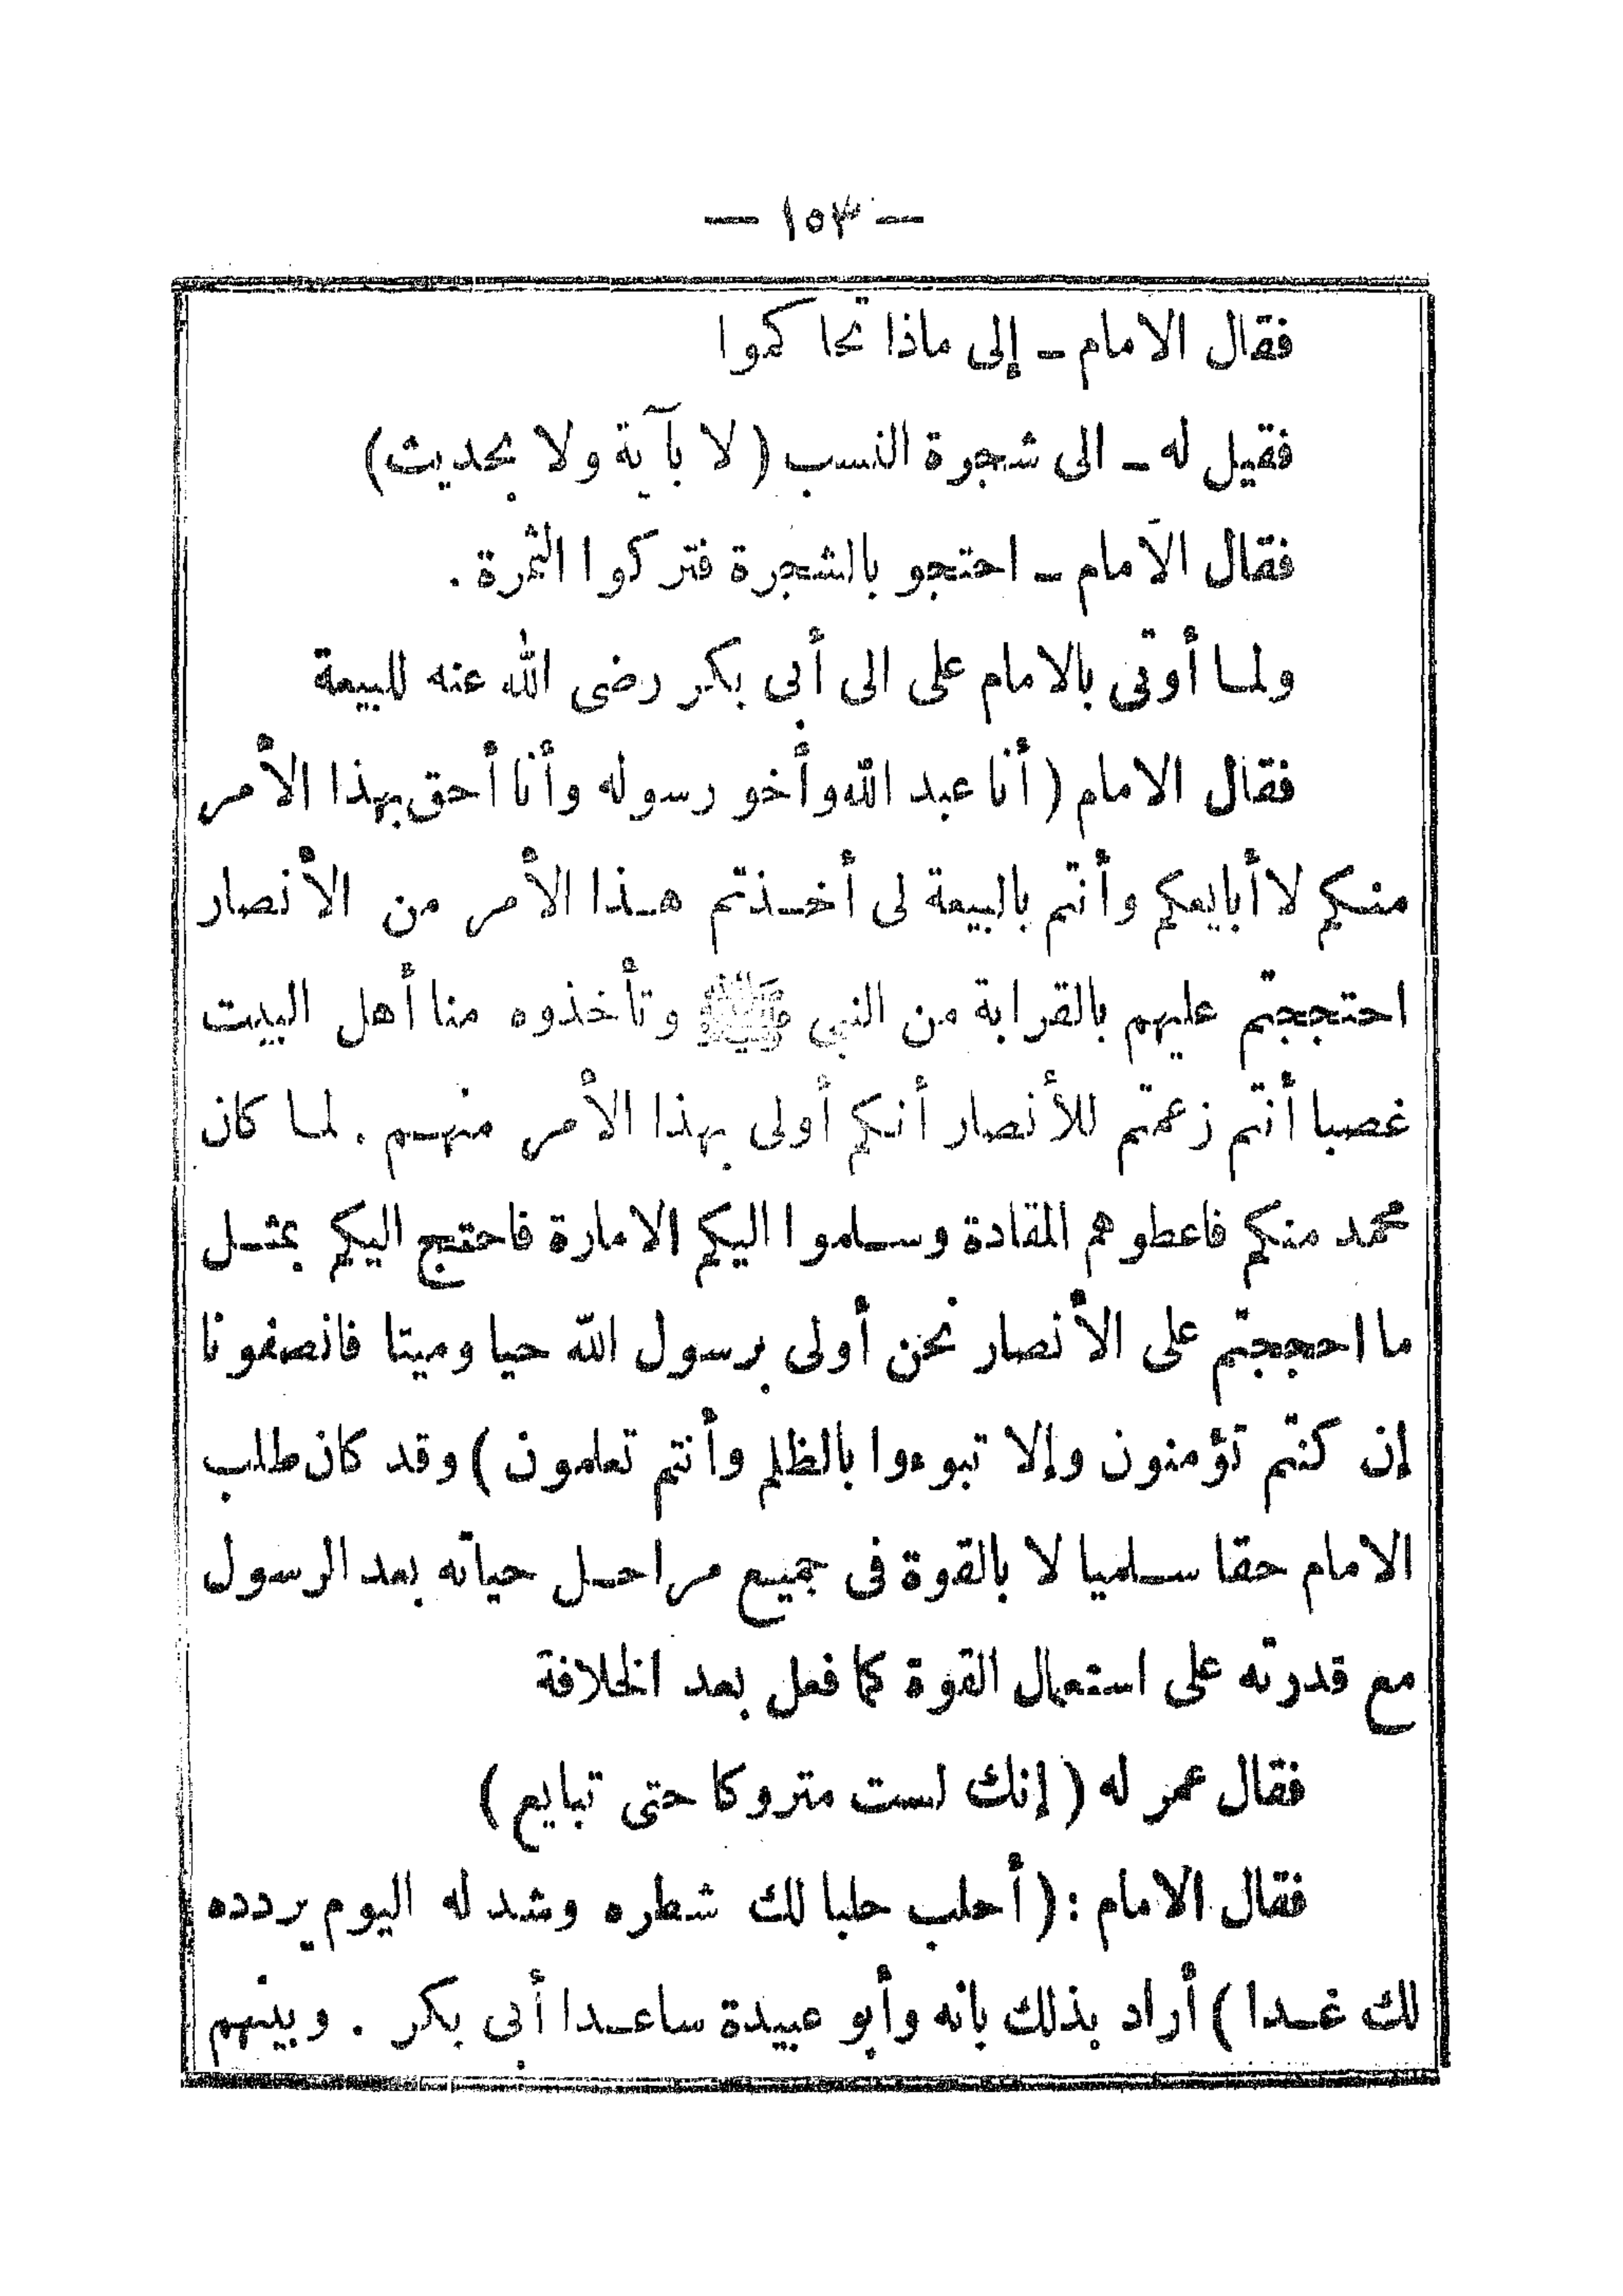 — ١٥٣ —
فقال الامام ـ إلى ماذا تحاكموا
فقيل له ـ الى شجرة النسب ( لا بآية ولا بحديث )
فقال الامام ـ احتجو بالشجرة فتركوا الثمرة .
ولما أوتى بالامام على الى أبى بكر رضى الله عنه للبيعة
فقال الامام ( أنا عبد الله وأخو رسوله وأنا أحق بهذا الأمر
منكم لا أبايعكم وأنتم بالبيعة لى أخذتم هذا الأمر من الأنصار
احتججتم عليهم بالقرابة من النبى ﷺ وتأخذوه منا أهل البيت
غصبا أنتم زعمتم للأنصار أنكم أولى بهذا الأمر منهم . لما كان
محمد منكم فاعطوهم المقادة وسلموا اليكم الامارة فاحتج اليكم بمثل
ما احججتم على الأنصار نحن أولى برسول الله حيا وميتا فانصفونا
إن كنتم تؤمنون وإلا تبوءوا بالظلم وأنتم تعلمون ) وقد كان طلب
الامام حقا سلميا لا بالقوة فى جميع مراحل حياته بعد الرسول
مع قدرته على استعمال القوة كما فعل بعد الخلافة
فقال عمر له ( إنك لست متروكا حتى تبايع )
فقال الامام : ( أحلب حلبا لك شطره وشد له اليوم يردده
لك غدا ) أراد بذلك بانه وأبو عبيدة ساعدا أبى بكر . وبينهم